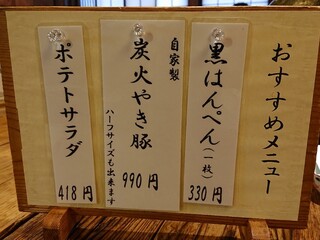 おすすめメニュー
黒はんぺん(一枚)
330円
自家製
炭火やき豚
ハーフサイズも出来ます
990円
ポテトサラダ
418円